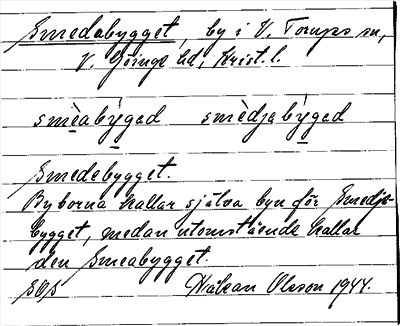 Smedabygget, by i V. Torups sn,
V. Göinge hd, Krist. l.
smèabỳgad smèdjabỳgad
Smedebygget.
Byborna kallar själva byn för Smedje-
bygget, medan utomstående kallar
den Smeabygget.
Håkan Olsson 1944.